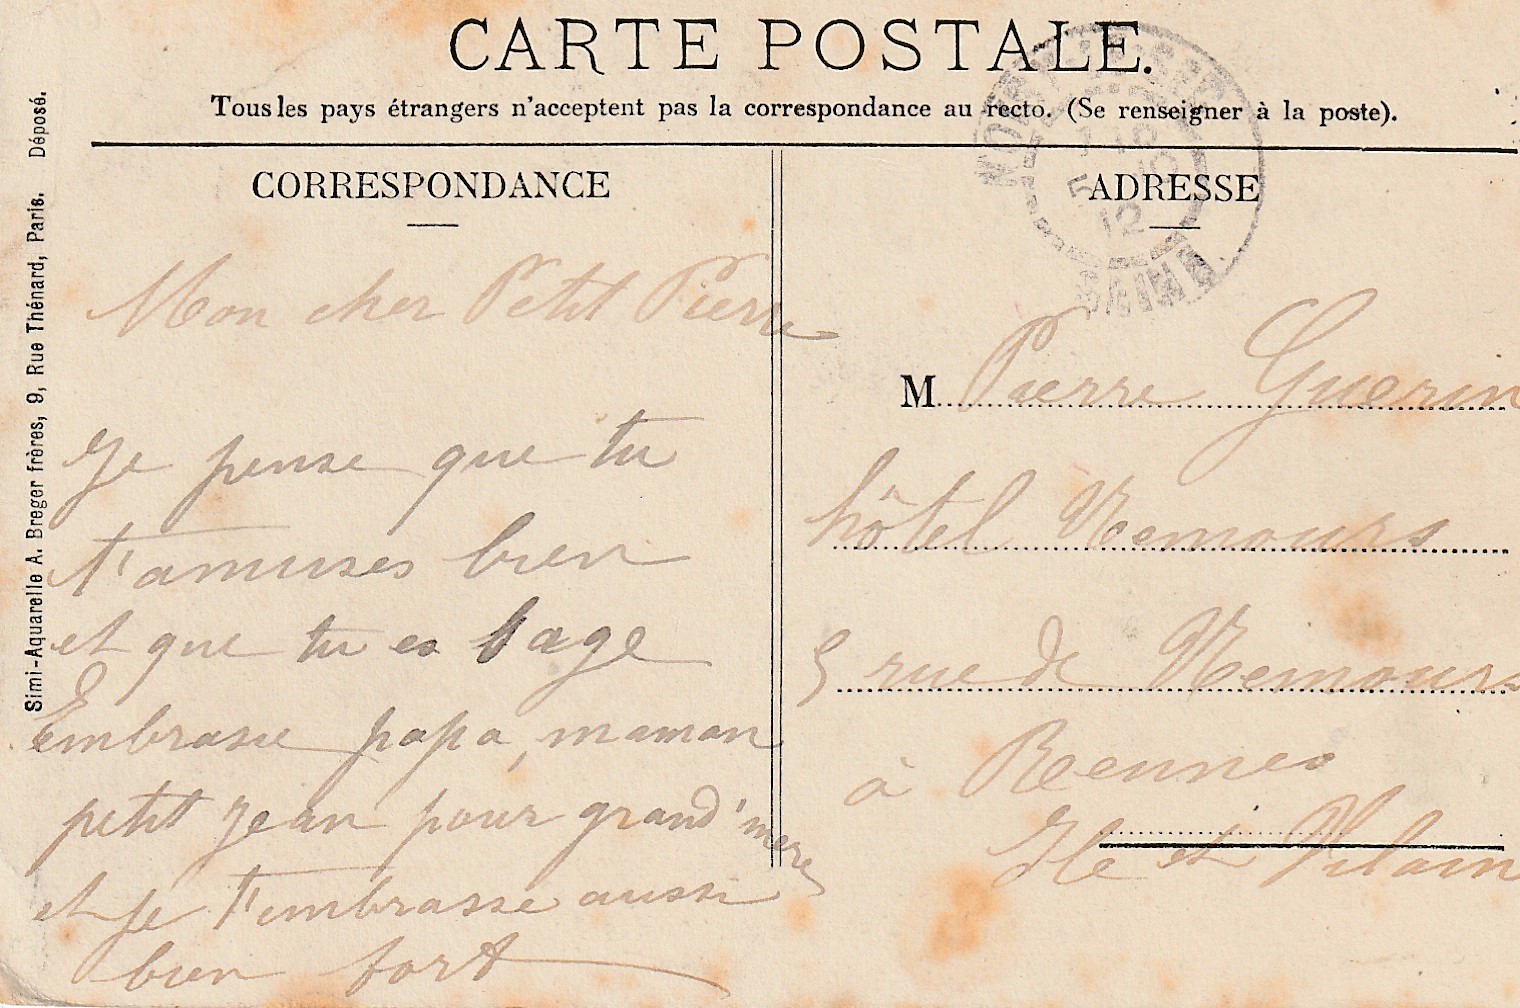 CARTE POSTALE.
Tous les pays étrangers n'acceptent pas la correspondance au recto. (Se renseigner à la poste).
Simi-Aquarelle A. Breger frères, 9, Rue Thénard, Paris. Déposé.
CORRESPONDANCE
Mon cher Petit Pierre
Je pense que tu
t'amuses bien
et que tu es sage
Embrasse papa, maman
petit Jean pour grand'mere
et je t'embrasse aussi
bien fort
ADRESSE
12
SEINE
M Pierre Guerin
hôtel Nemours
5 rue de Nemours
à Rennes
Ile et Vilaine